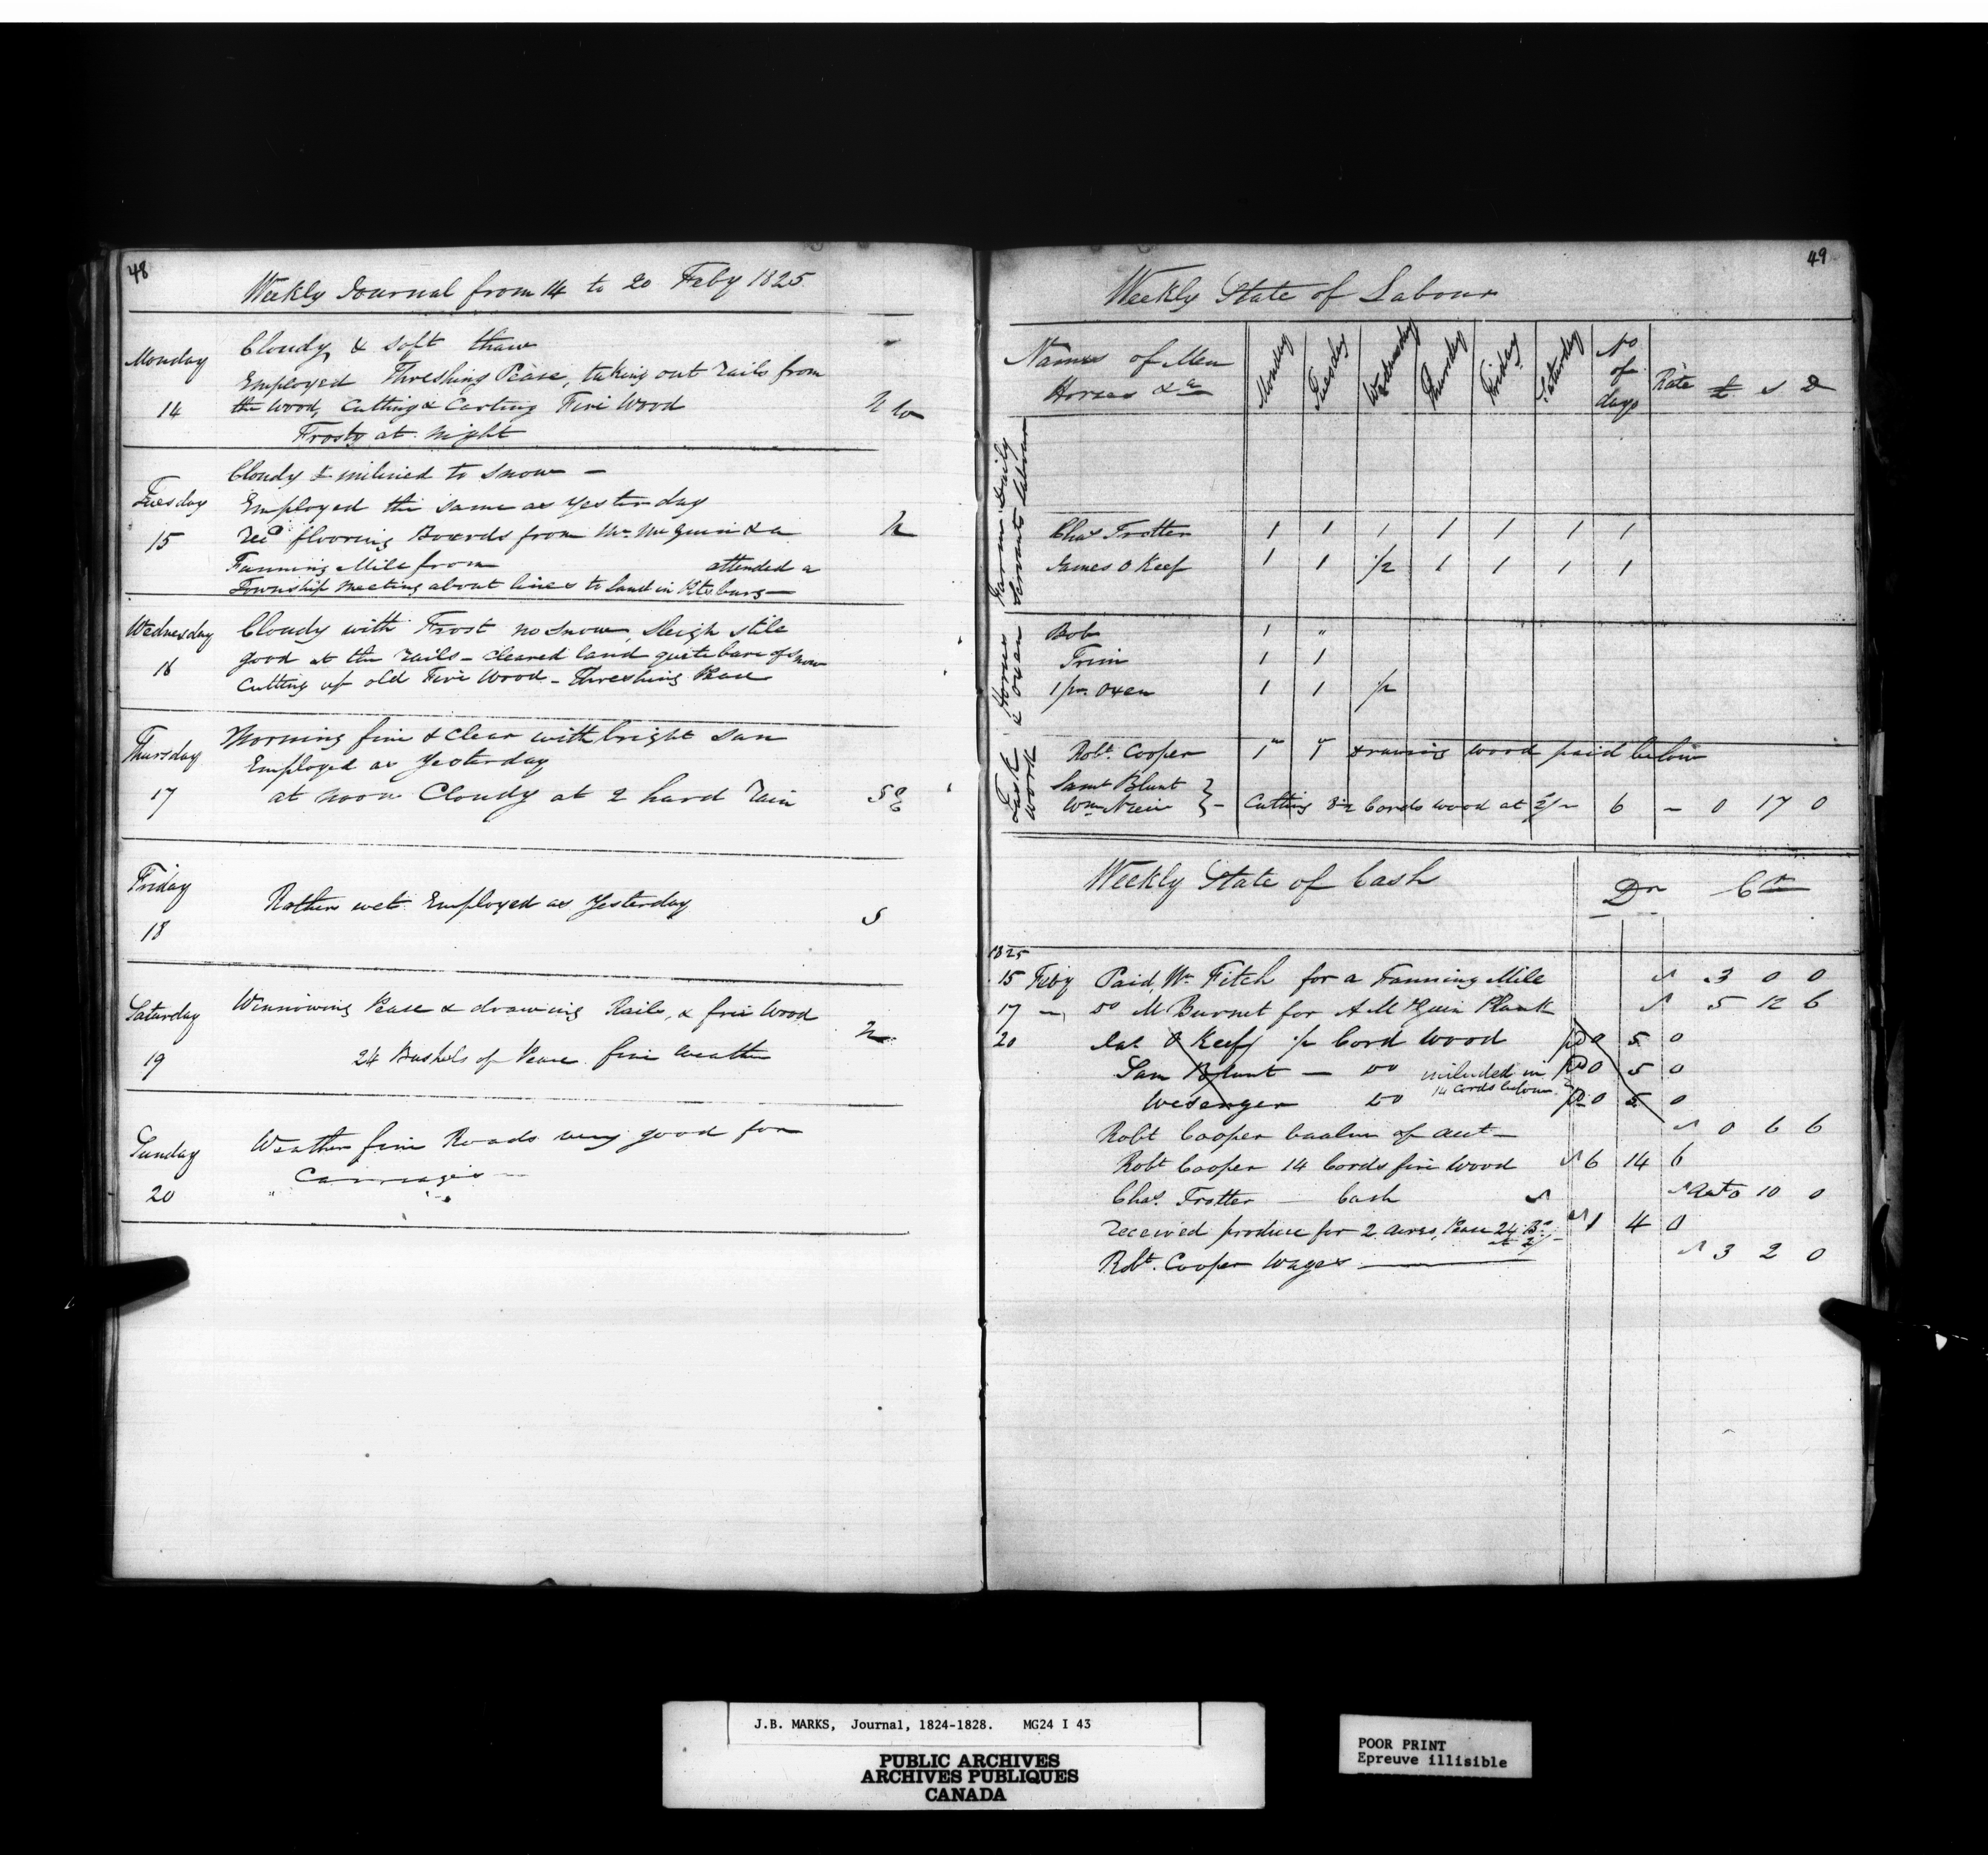 48
Weekly Journal from 14 to 20 Feby 1825
Monday
14
Cloudy & soft thaw
Employed Threshing Pease, taking out rails from
the Wood, Cutting & Carting Fire Wood
Frosty at night
N W
Tuesday
15
Cloudy & inclined to snow –
Employed the same as yesterday
Recd flooring Boards from Mr. McGuin & a
Fanning Mill from attended a
Township Meeting about lines to land in Pitsburg –
N
Wednesday
16
Cloudy with Frost no snow, sleigh still
good at the rails – cleared land quite bare of snow
Cutting up old Fire Wood – Threshing Pease
Thursday
17
Morning fine & clear with bright sun
Employed as yesterday
at noon Cloudy at 2 hard rain
S E
Friday
18
Rather wet Employed as Yesterday
S
Saturday
19
Winnowing Pease & drawing Rails, & fire Wood
24 Bushels of Pease fine weather
N
Sunday
20
Weather fine Roads very good for
Carriages
49
Weekly State of Labour
Names of Men
Horses &c
Monday Tuesday Wednesday Thursday Friday Saturday No of days Rate £ s D
Daily Labour
Farm Servants
Chas Trotter 1 1 1 1 1 1 1
James O Keef 1 1 1/2 1 1 1 1
Horses & Oxen
Bob 1 "
Trim 1 1
1 pr. Oxen 1 1 1/2
Task Work
Robt. Cooper 1" 1" drawing wood paid below
Saml Blunt
Wm } – Cutting 8 1/2 Cords wood at 2/– 6 – 0 17 0
Weekly State of Cash
Dr Cr
1825
15 Feby Paid, Mr Fitch for a Fanning Mill 3 0 0
17 – Do M Burnet for A McGuin Plank 5 12 6
20 Jas O Keef 1/2 Cord Wood pd 0 5 0
Sam Blunt – Do included in pd 0 5 0
14 Cords below
Wesenger Do pd 0 5 0
Robt Cooper baalnc of act – 0 6 6
Robt Cooper 14 Cords fire Wood 6 14 6
Chas. Trotter – Cash act 0 10 0
received produce for 2 acres, Pease 24 Bs. at 1 4 0
Robt. Cooper Wages 3 2 0
J.B. MARKS, Journal, 1824-1828. MG24 I 43
PUBLIC ARCHIVES
ARCHIVES PUBLIQUES
CANADA
POOR PRINT
Epreuve illisible